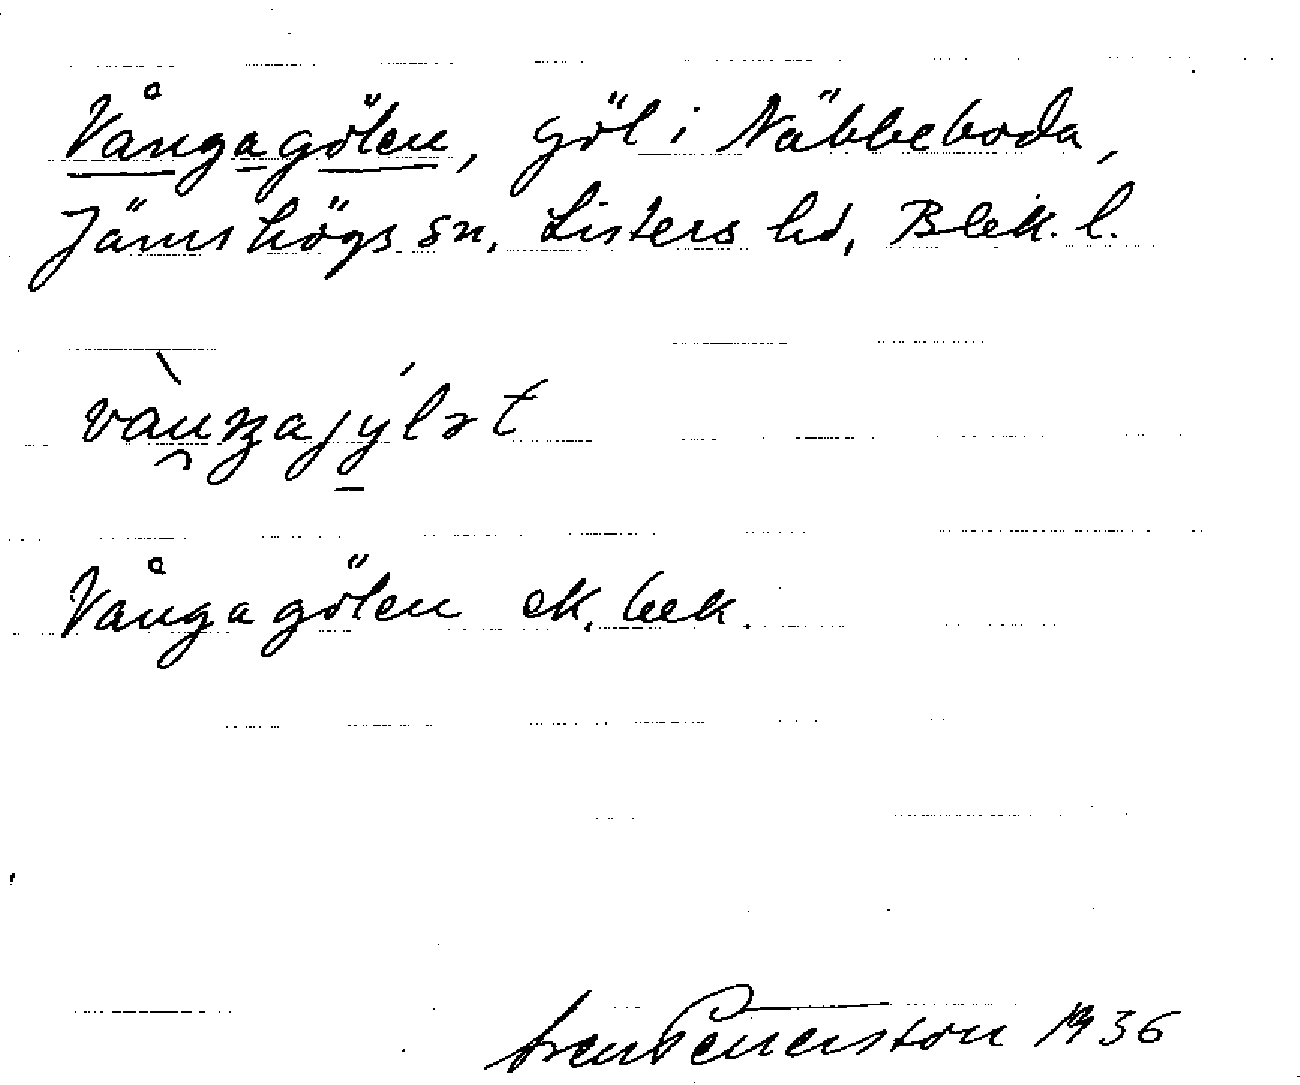 Vångagölen, göl i Näbbeboda,
Jämshögs sn, Listers hd, Blek. l.
Vångagölen ek. bek.
1936